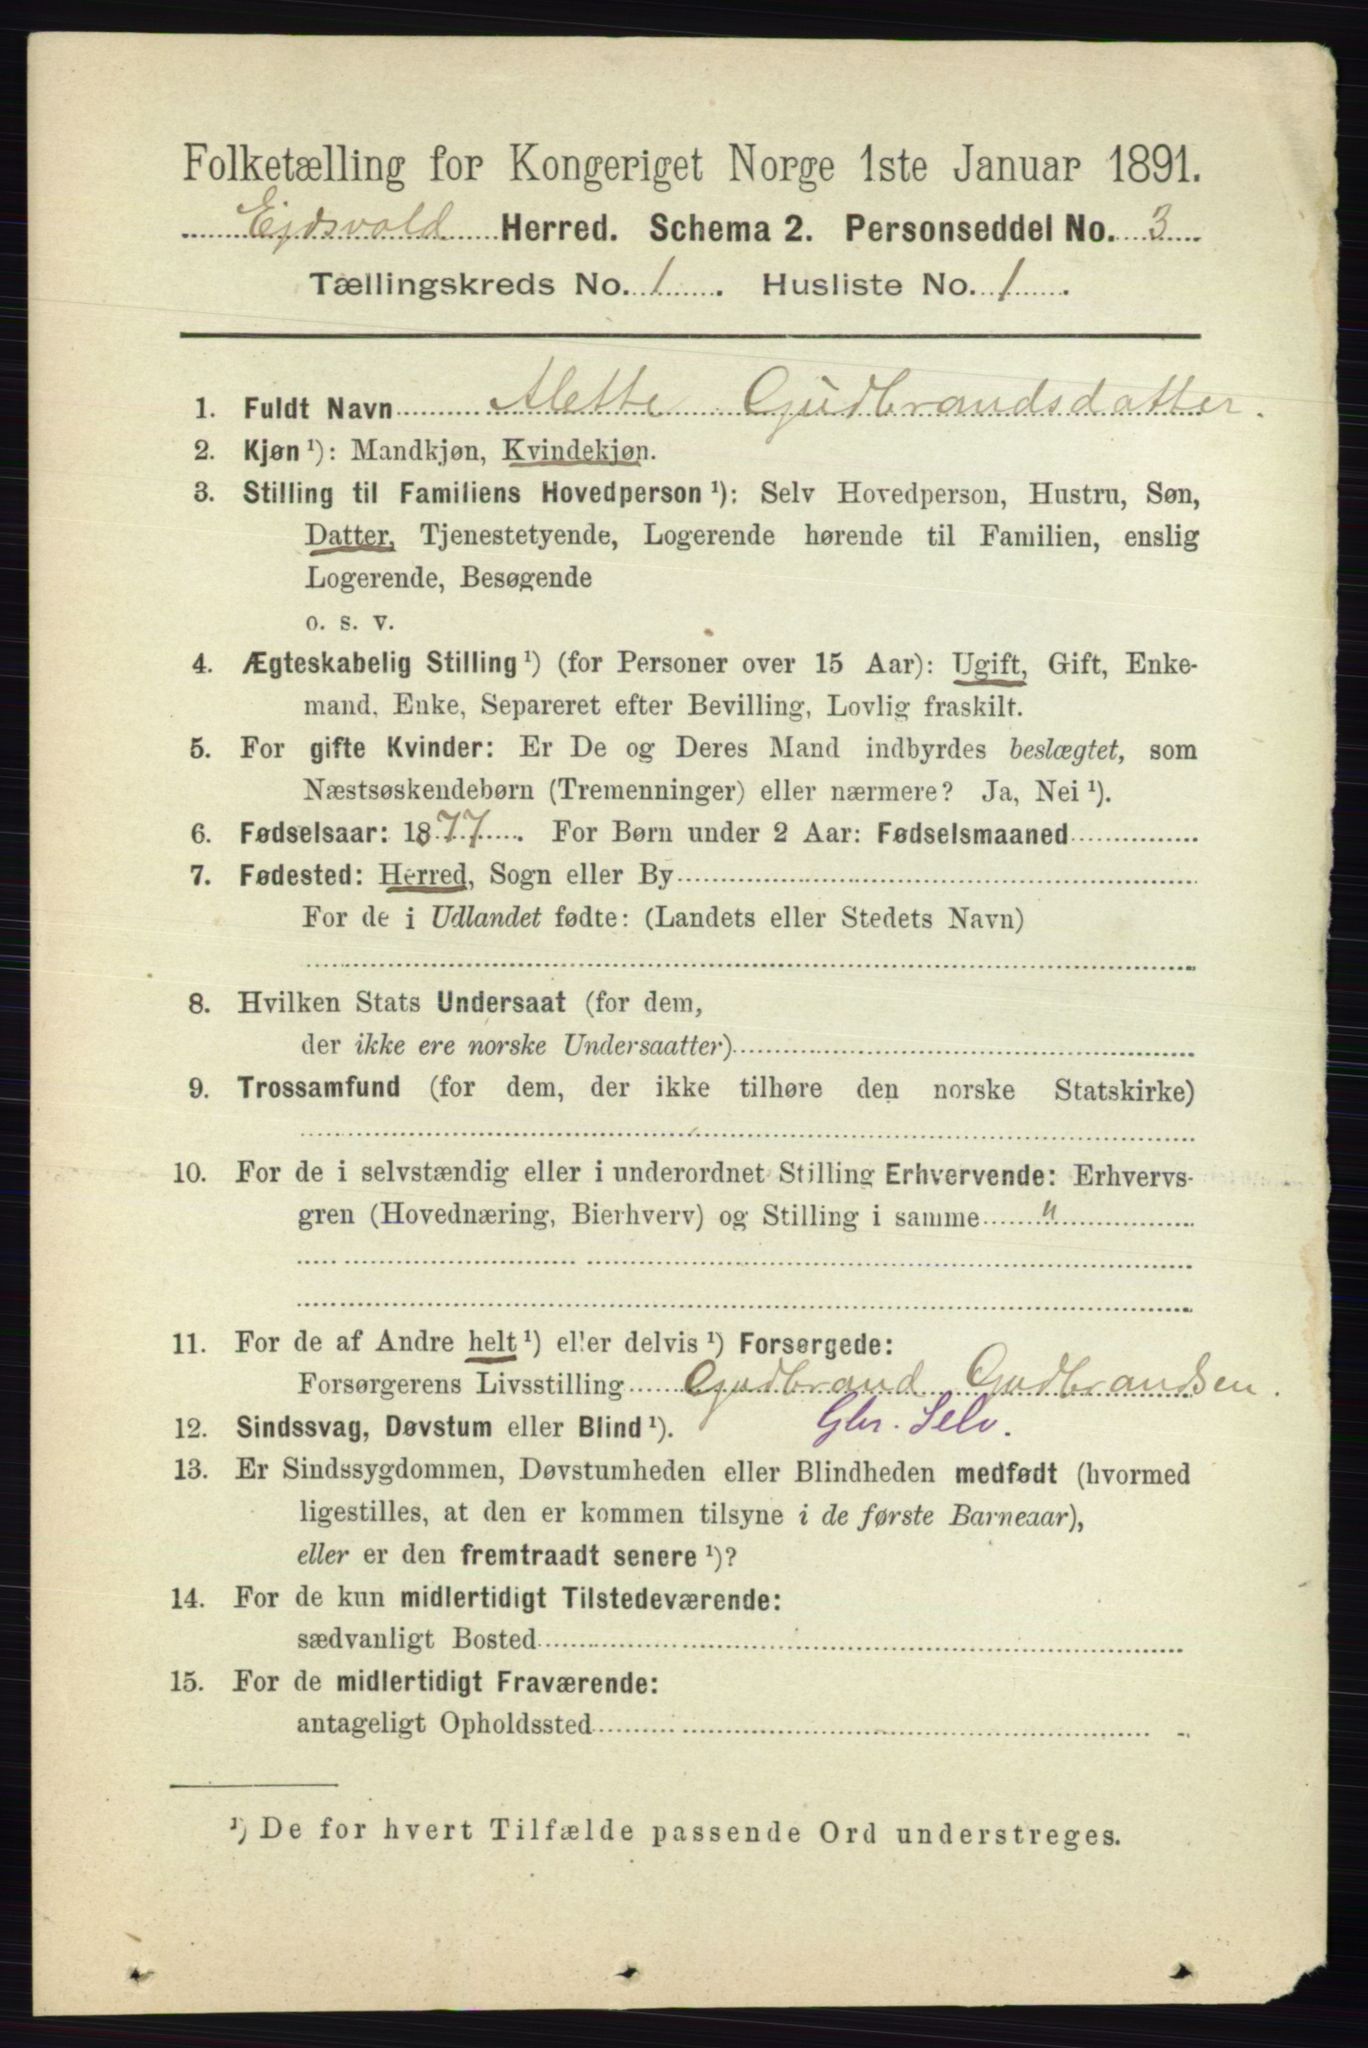 Folketælling for Kongeriget Norge 1ste Januar 1891.
Ejdsvold Herred. Schema 2. Personseddel No. 3
Tællingskreds No. 1. Husliste No. 1.
1. Fuldt Navn Alette Gudbrandsdatter.
2. Kjøn ¹): Mandkjøn, Kvindekjøn.
3. Stilling til Familiens Hovedperson ¹): Selv Hovedperson, Hustru, Søn,
Datter, Tjenestetyende, Logerende hørende til Familien, enslig
Logerende, Besøgende
o. s. v.
4. Ægteskabelig Stilling ¹) (for Personer over 15 Aar): Ugift, Gift, Enke-
mand, Enke, Separeret efter Bevilling, Lovlig fraskilt.
5. For gifte Kvinder: Er De og Deres Mand indbyrdes beslægtet, som
Næstsøskendebørn (Tremenninger) eller nærmere? Ja, Nei ¹).
6. Fødselsaar: 1877. For Børn under 2 Aar: Fødselsmaaned
7. Fødested: Herred, Sogn eller By
For de i Udlandet fødte: (Landets eller Stedets Navn)
8. Hvilken Stats Undersaat (for dem,
der ikke ere norske Undersaatter)
9. Trossamfund (for dem, der ikke tilhøre den norske Statskirke)
10. For de i selvstændig eller i underordnet Stilling Erhvervende: Erhvervs-
gren (Hovednæring, Bierhverv) og Stilling i samme "
11. For de af Andre helt ¹) eller delvis ¹) Forsørgede:
Forsørgerens Livsstilling Gudbrand Gudbrandsen.
12. Sindssvag, Døvstum eller Blind ¹). Gbr. Selv.
13. Er Sindssygdommen, Døvstumheden eller Blindheden medfødt (hvormed
ligestilles, at den er kommen tilsyne i de første Barneaar),
eller er den fremtraadt senere ¹)?
14. For de kun midlertidigt Tilstedeværende:
sædvanligt Bosted
15. For de midlertidigt Fraværende:
antageligt Opholdssted
¹) De for hvert Tilfælde passende Ord understreges.